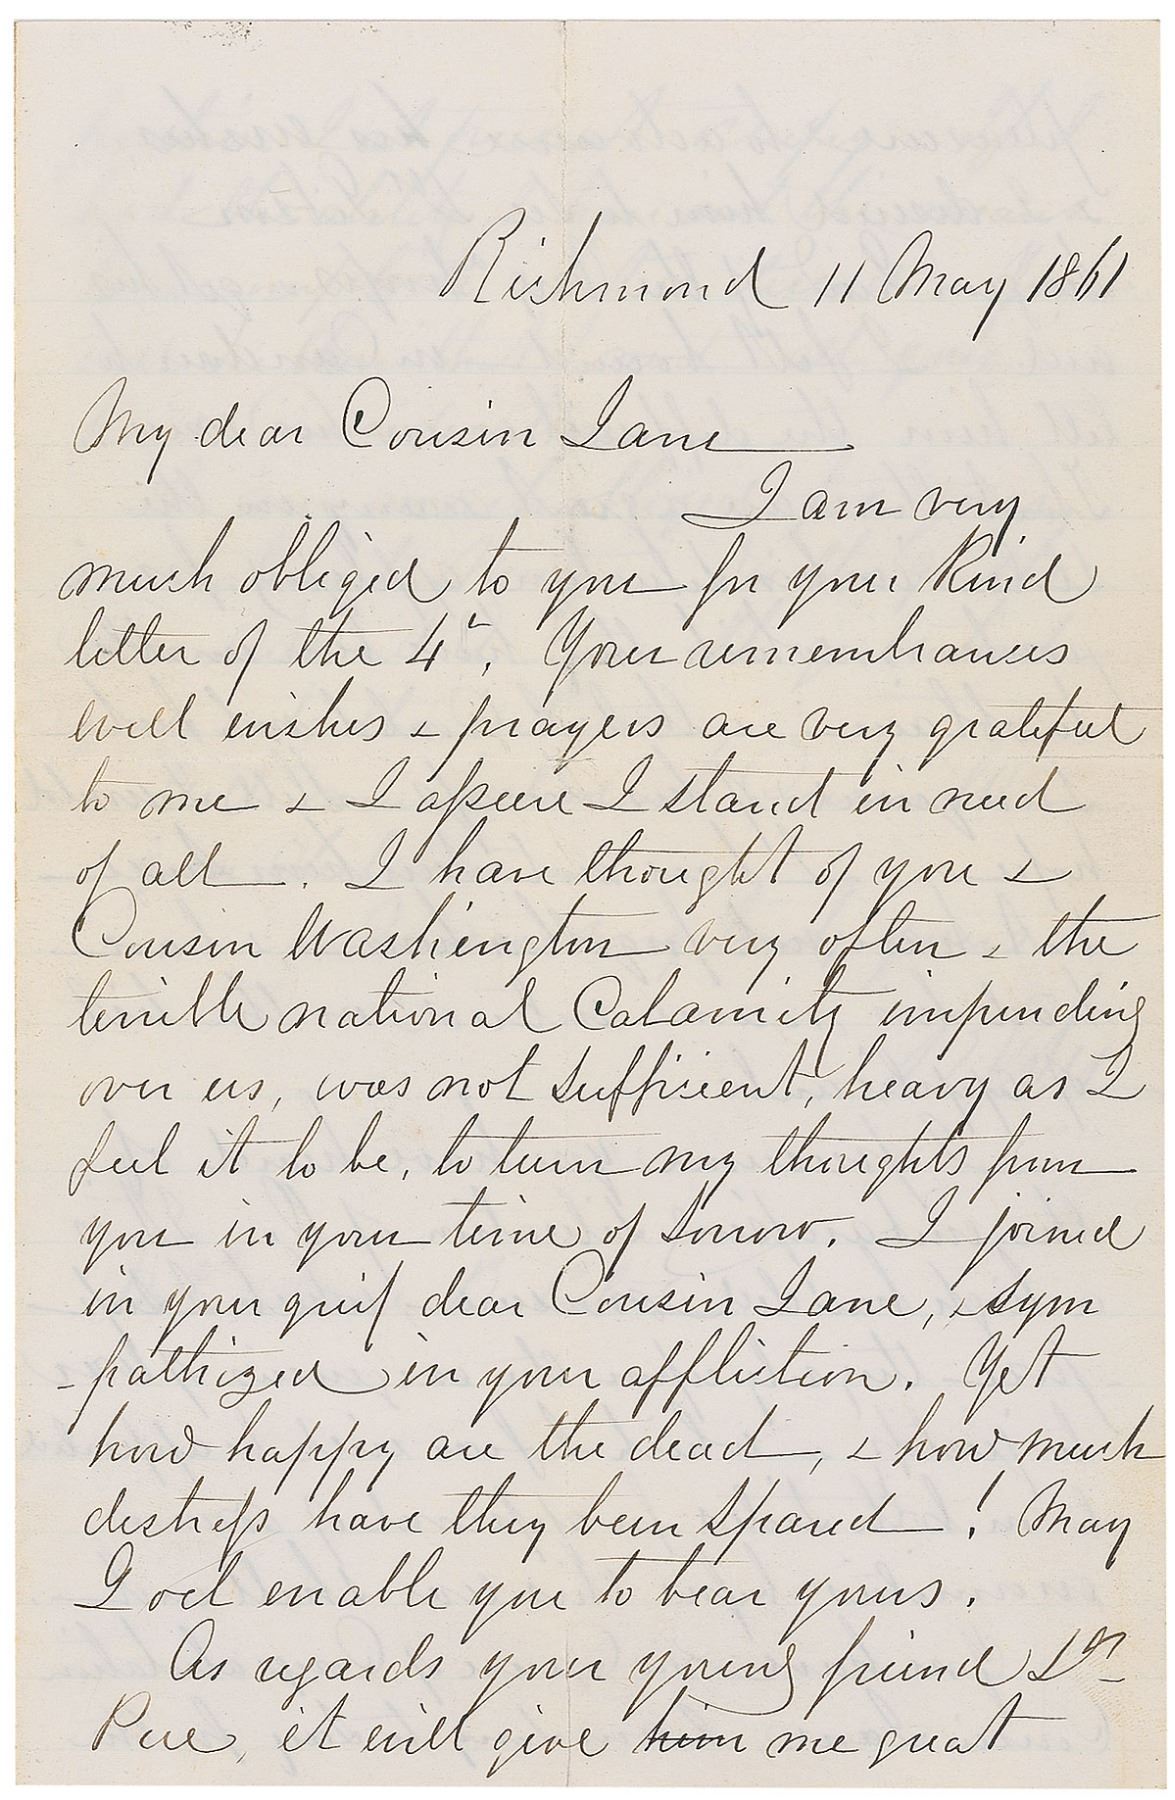 Richmond 11 May 1861
My dear Cousin Jane
I am very
much obliged to you for your kind
letter of the 4th. Your remembrances
well wishes & prayers are very grateful
to me & I assure I stand in need
of all. I have thought of you &
Cousin Washington very often & the
terrible national Calamity impending
over us, was not sufficient, heavy as I
feel it to be, to turn my thoughts from
you in your time of sorrow. I joined
in your grief dear Cousin Jane, & sym
-pathized in your affliction. Yet
how happy are the dead, & how much
distress have they been spared! May
God enable you to bear yours.
As regards your young friend Dr
Pue, it will give him me great